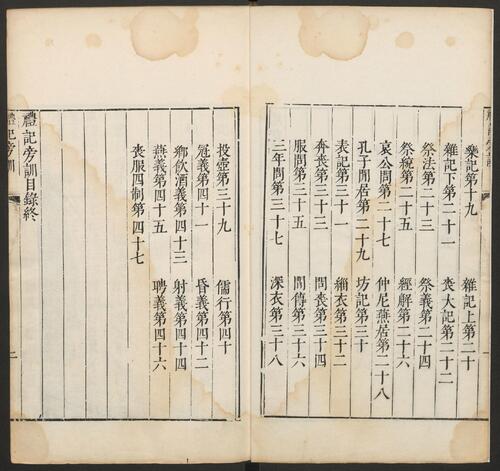 樂記第十九　雜記上第二十
雜記下第二十一　喪大記第二十二
祭法第二十三　祭義第二十四
祭統第二十五　經解第二十六
哀公問第二十七　仲尼燕居第二十八
孔子閒居第二十九　坊記第三十
表記第三十一　緇衣第三十二
奔喪第三十三　問喪第三十四
服問第三十五　間傳第三十六
三年問第三十七　深衣第三十八
投壺第三十九　儒行第四十
冠義第四十一　昏義第四十二
鄉飲酒義第四十三　射義第四十四
燕義第四十五　聘義第四十六
喪服四制第四十七
禮記旁訓目錄終
禮記旁訓
二